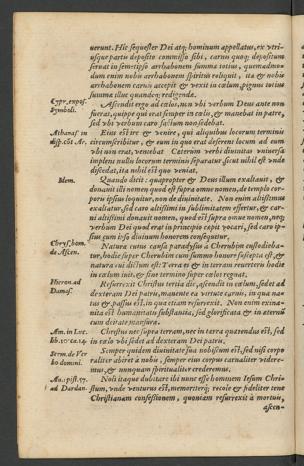 uerunt. Hic sequester Dei atq; hominum appellatus, ex vtri-
usque partu deposito commisso sibi, carnis quoq; depositum
seruat in semetipso arrhabonem summæ totius, quemadmo-
dum enim nobis arrhabonem spiritus reliquit, ita & nobis
arrhabonem carnis accepit & vexit in cœlum, pignus totius
summæ illuc quandoq; redigendæ.
Cypr. expos.
Symboli.
Ascendit ergo ad cœlos, non vbi verbum Deus ante non
fuerat, quippe qui erat semper in cœlis, & manebat in patre,
sed vbi verbum caro factum non sedebat.
Athanas. in
disp. cōt. Ar.
Eius est ire & venire, qui aliquibus locorum terminis
circumscribitur, & eum in quo erat deferens locum ad eum
vbi non erat, veniebat. Cæterum verbi diuinitas vniuersa
implens nullis locorum terminis separatur sicut nihil est vnde
discedat, ita nihil est quo veniat.
Idem.
Quando dicit: quapropter & Deus illum exaltauit, &
donauit illi nomen quod est supra omne nomen, de templo cor-
poris ipsius loquitur, non de diuinitate. Non enim altissimus
exaltatur, sed caro altissimi in sublimitatem effertur, & car-
ni altissimi donauit nomen, quod est supra omne nomen, neq;
verbum Dei quod erat in principio cœpit vocari, sed caro ip-
sius cum ipso diuinum honorem consequitur.
Chrys. hom.
de Ascen.
Natura cuius causa paradysus à Cherubim custodieba-
tur, hodie super Cherubim cum summo honore suscepta est, &
natura cui dictum est: Terra es & in terram reuerteris hodie
in cœlum iuit, & siue termino super cœlos regnat.
Hieron. ad
Damas.
Resurrexit Christus tertia die, ascendit in cœlum, sedet ad
dexteram Dei patris, manente ea virtute carnis, in qua na-
tus & passus est, in qua etiam resurrexit. Non enim exina-
nita est humanitatis substantia, sed glorificata & in æternū
cum deitate mansura.
Am. in Luc.
lib. 10. ca. 24.
Christus nec supra terram, nec in terra quærendus est, sed
in cœlo vbi sedet ad dexteram Dei patris.
Serm. de Ver
bo domini.
Semper quidem diuinitate sua nobiscum est, sed nisi corpo
raliter abiret à nobis, semper eius corpus carnaliter videre-
mus, & nunquam spiritualiter crederemus.
Au. epist. 57.
ad Dardan.
Noli itaque dubitare ibi nunc esse hominem Iesum Chri-
stum, vnde venturus est, memoriterq; recole & fideliter tene
Christianam confessionem, quoniam resurrexit à mortuis,
ascen-